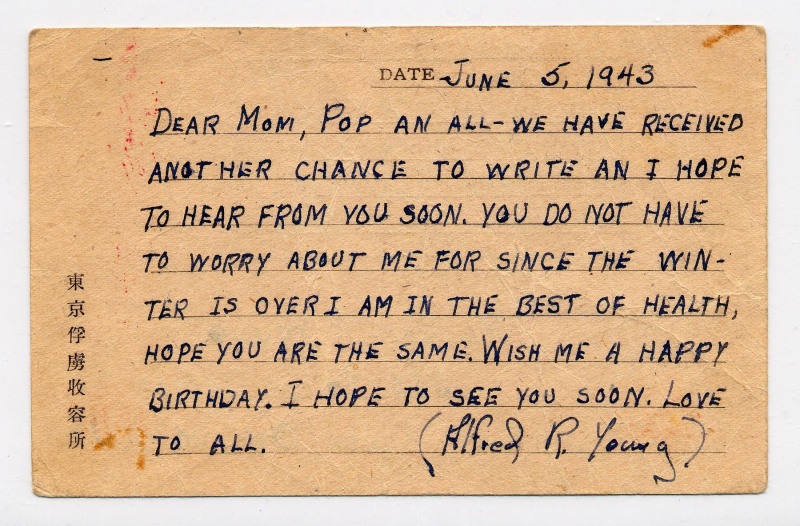 DATE JUNE 5, 1943
DEAR MOM, POP AN ALL-WE HAVE RECEIVED
ANOTHER CHANCE TO WRITE AN I HOPE
TO HEAR FROM YOU SOON. YOU DO NOT HAVE
TO WORRY ABOUT ME FOR SINCE THE WIN-
TER IS OVER I AM IN THE BEST OF HEALTH,
HOPE YOU ARE THE SAME. WISH ME A HAPPY
BIRTHDAY. I HOPE TO SEE YOU SOON. LOVE
TO ALL. (Alfred R. Young)
東京俘虜收容所